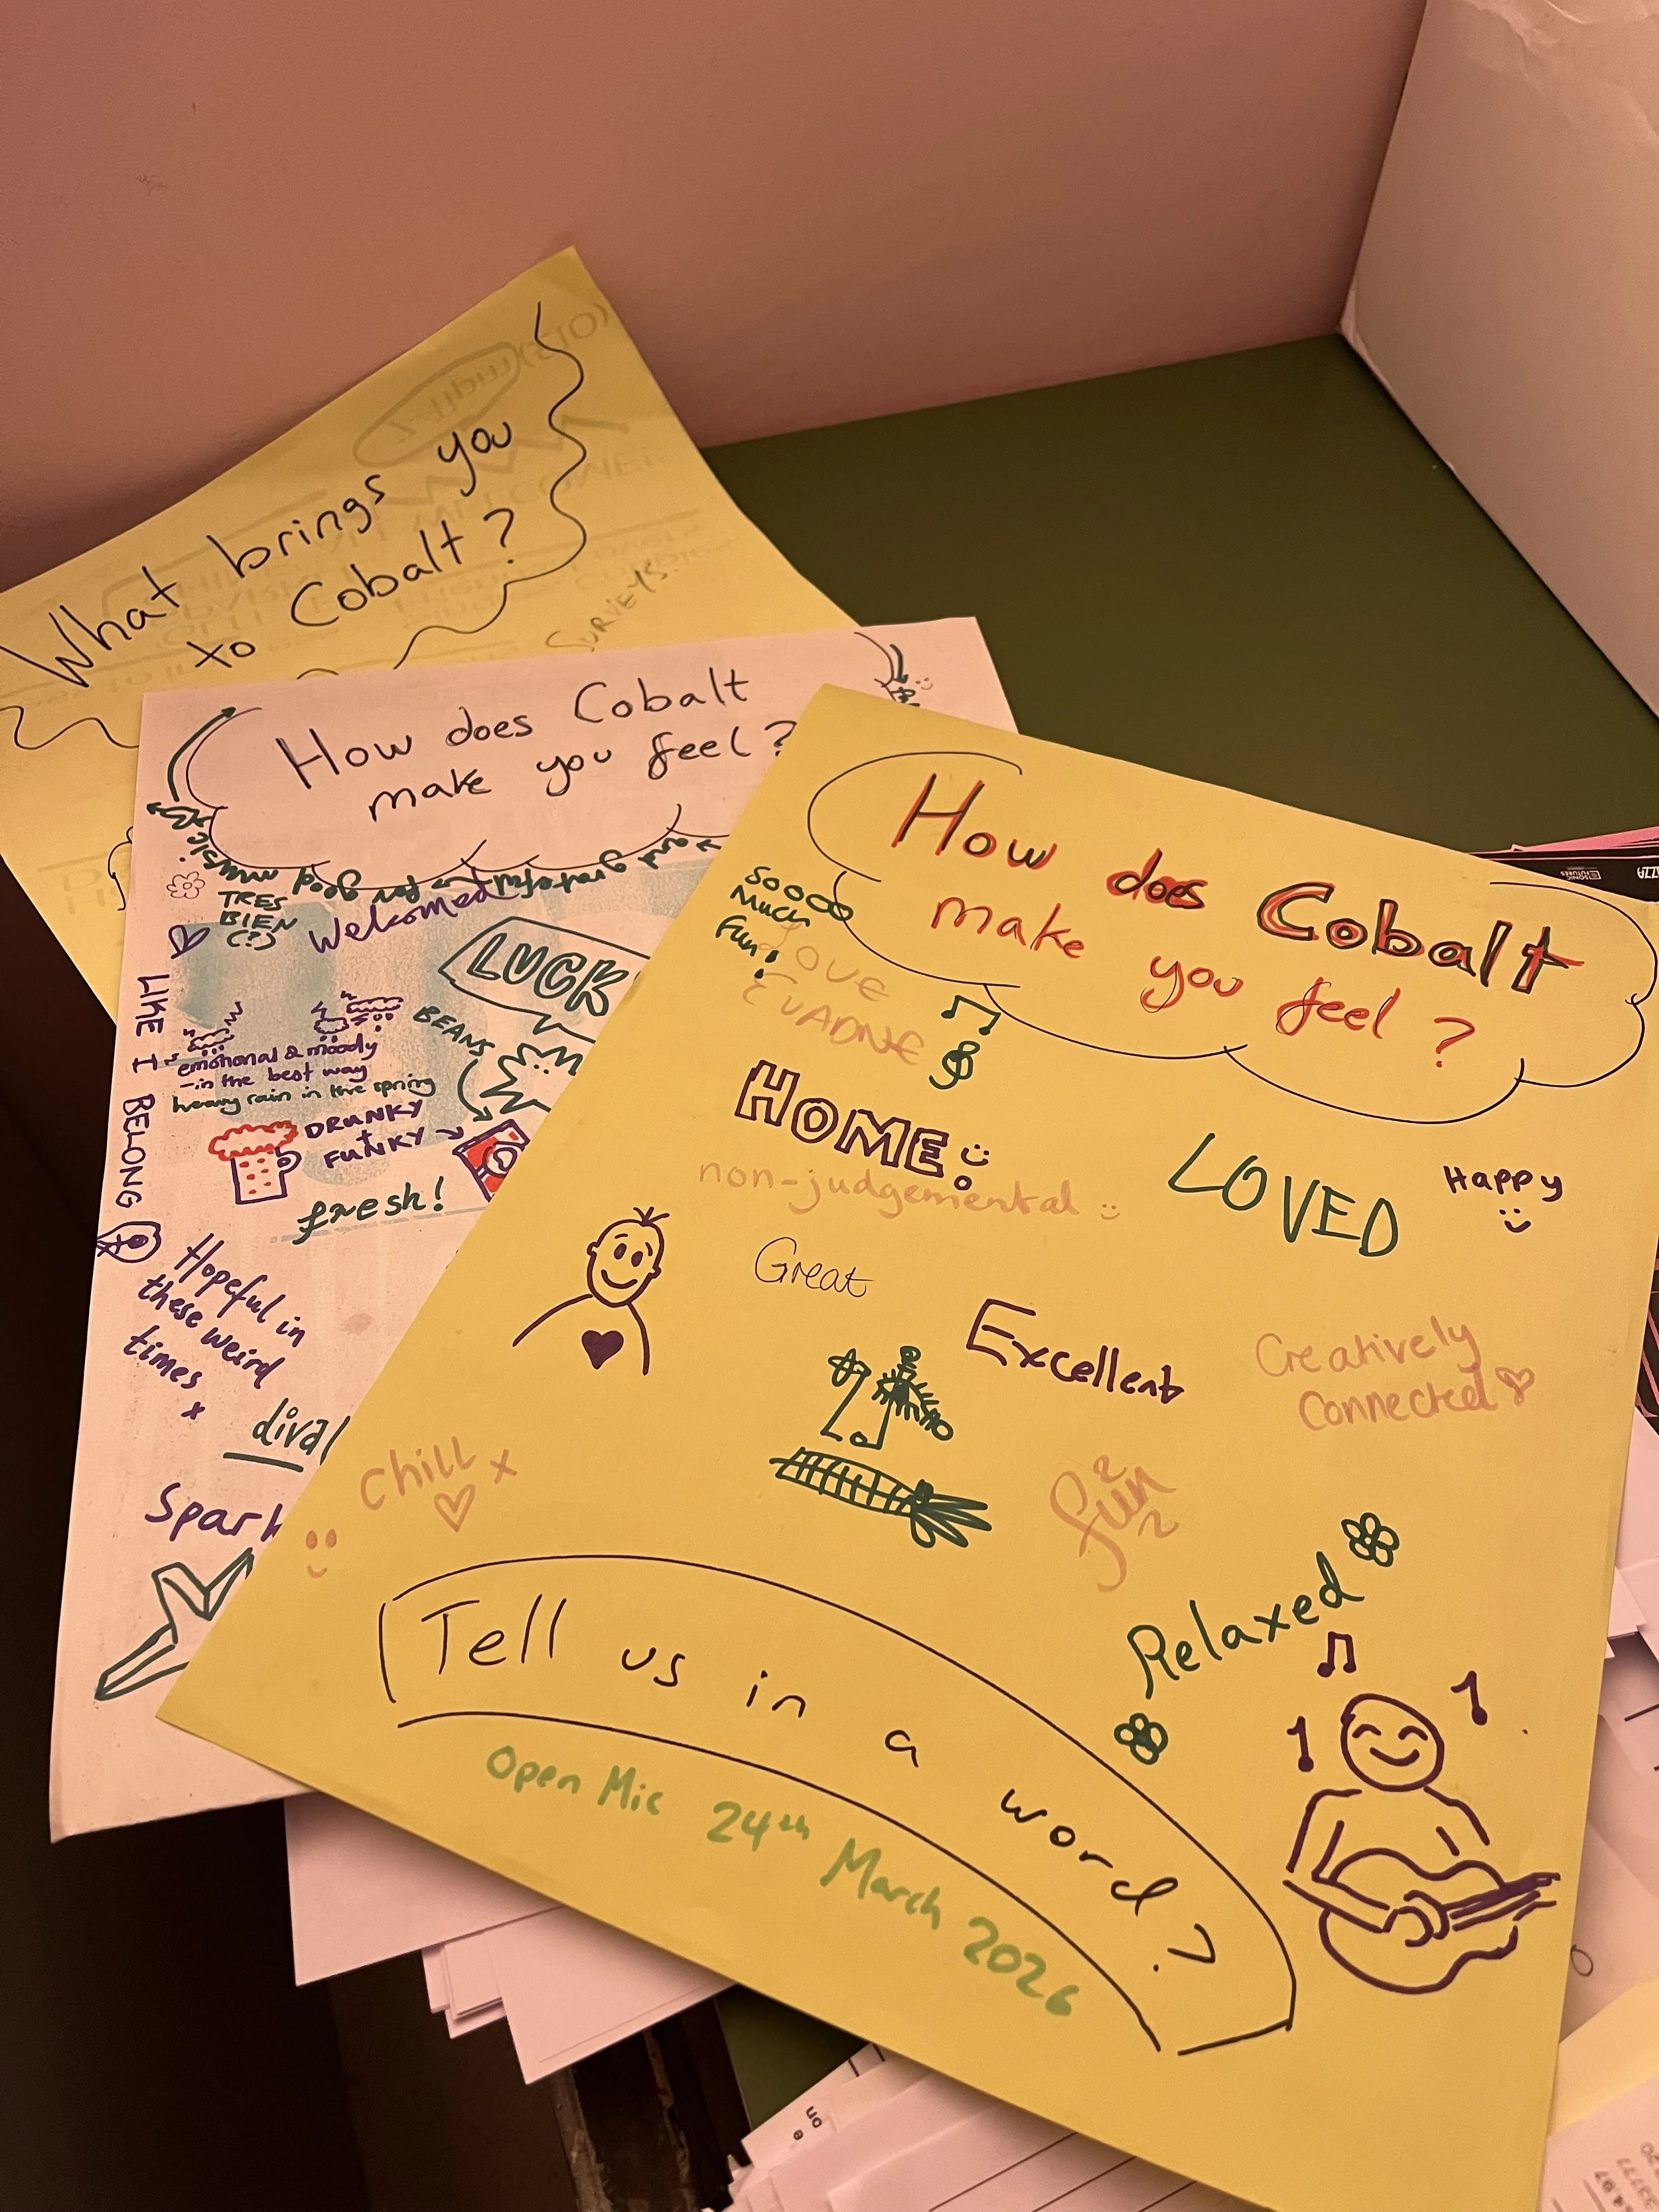 What brings you
to Cobalt?
SURVEYS.
How does Cobalt
make you feel?
and grateful for good music
TRES
BIEN
(?)
Welcomed
LUCK
BEANS
LIKE I BELONG
emotional & moody
- in the best way
heavy rain in the spring
DRUNKY
+
FUNKY
fresh!
Hopeful in
these weird
times
x
diva!
Spark
How does Cobalt
make you feel?
Soooo
Much
Fun!
LOVE
EVADNE
HOME
non-judgemental
LOVED
Happy
Great
Excellent
Creatively
Connected
Chill x
fun
Relaxed
Tell us in a word?
Open Mic 24th March 2026